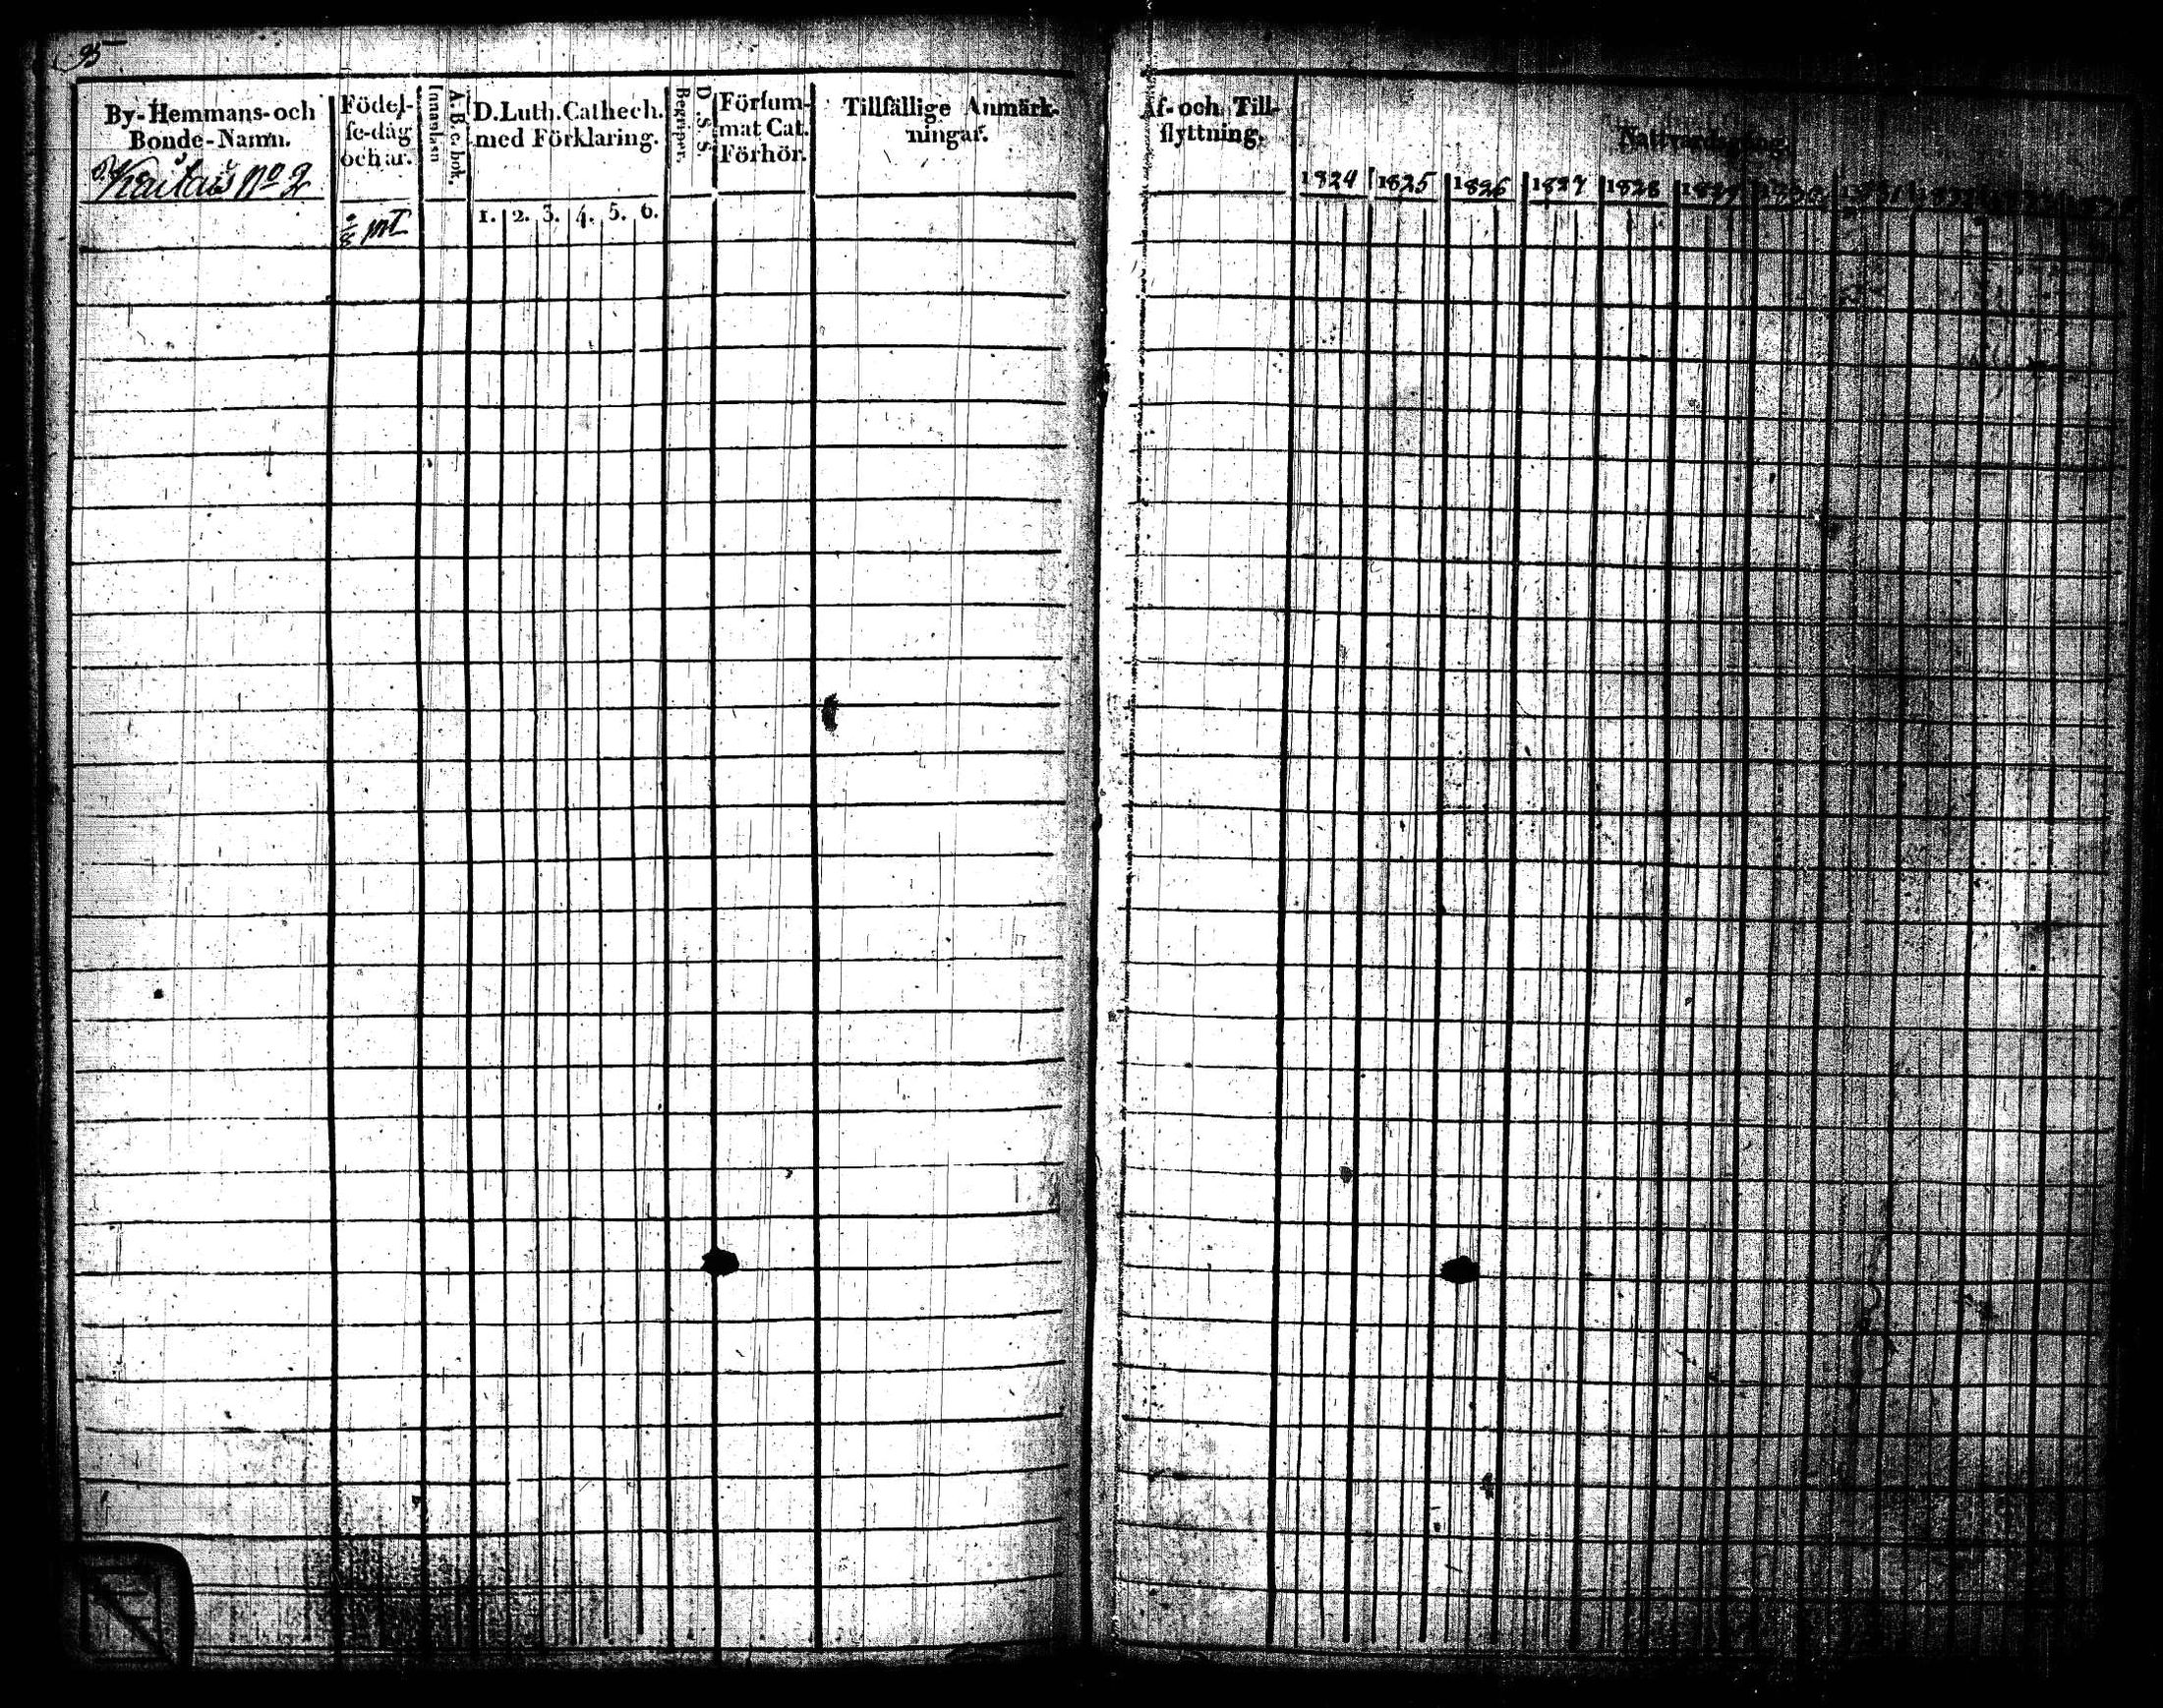 95
By-Hemmans-och
Bonde-Namn.
Födel-
se-dag
och år.
Innanläsn
A.B.c.bok.
D.Luth.Cathech.
med Förklaring.
Begriper.
D.S.S.
Försum-
mat Cat.
Förhör.
Tillfällige Anmärk-
ningar.
Af-och Till-
flyttning.
Nattvardsgång.
No 2
1824 1825 1826 1827 1828 1829
1. 2. 3. 4. 5. 6.